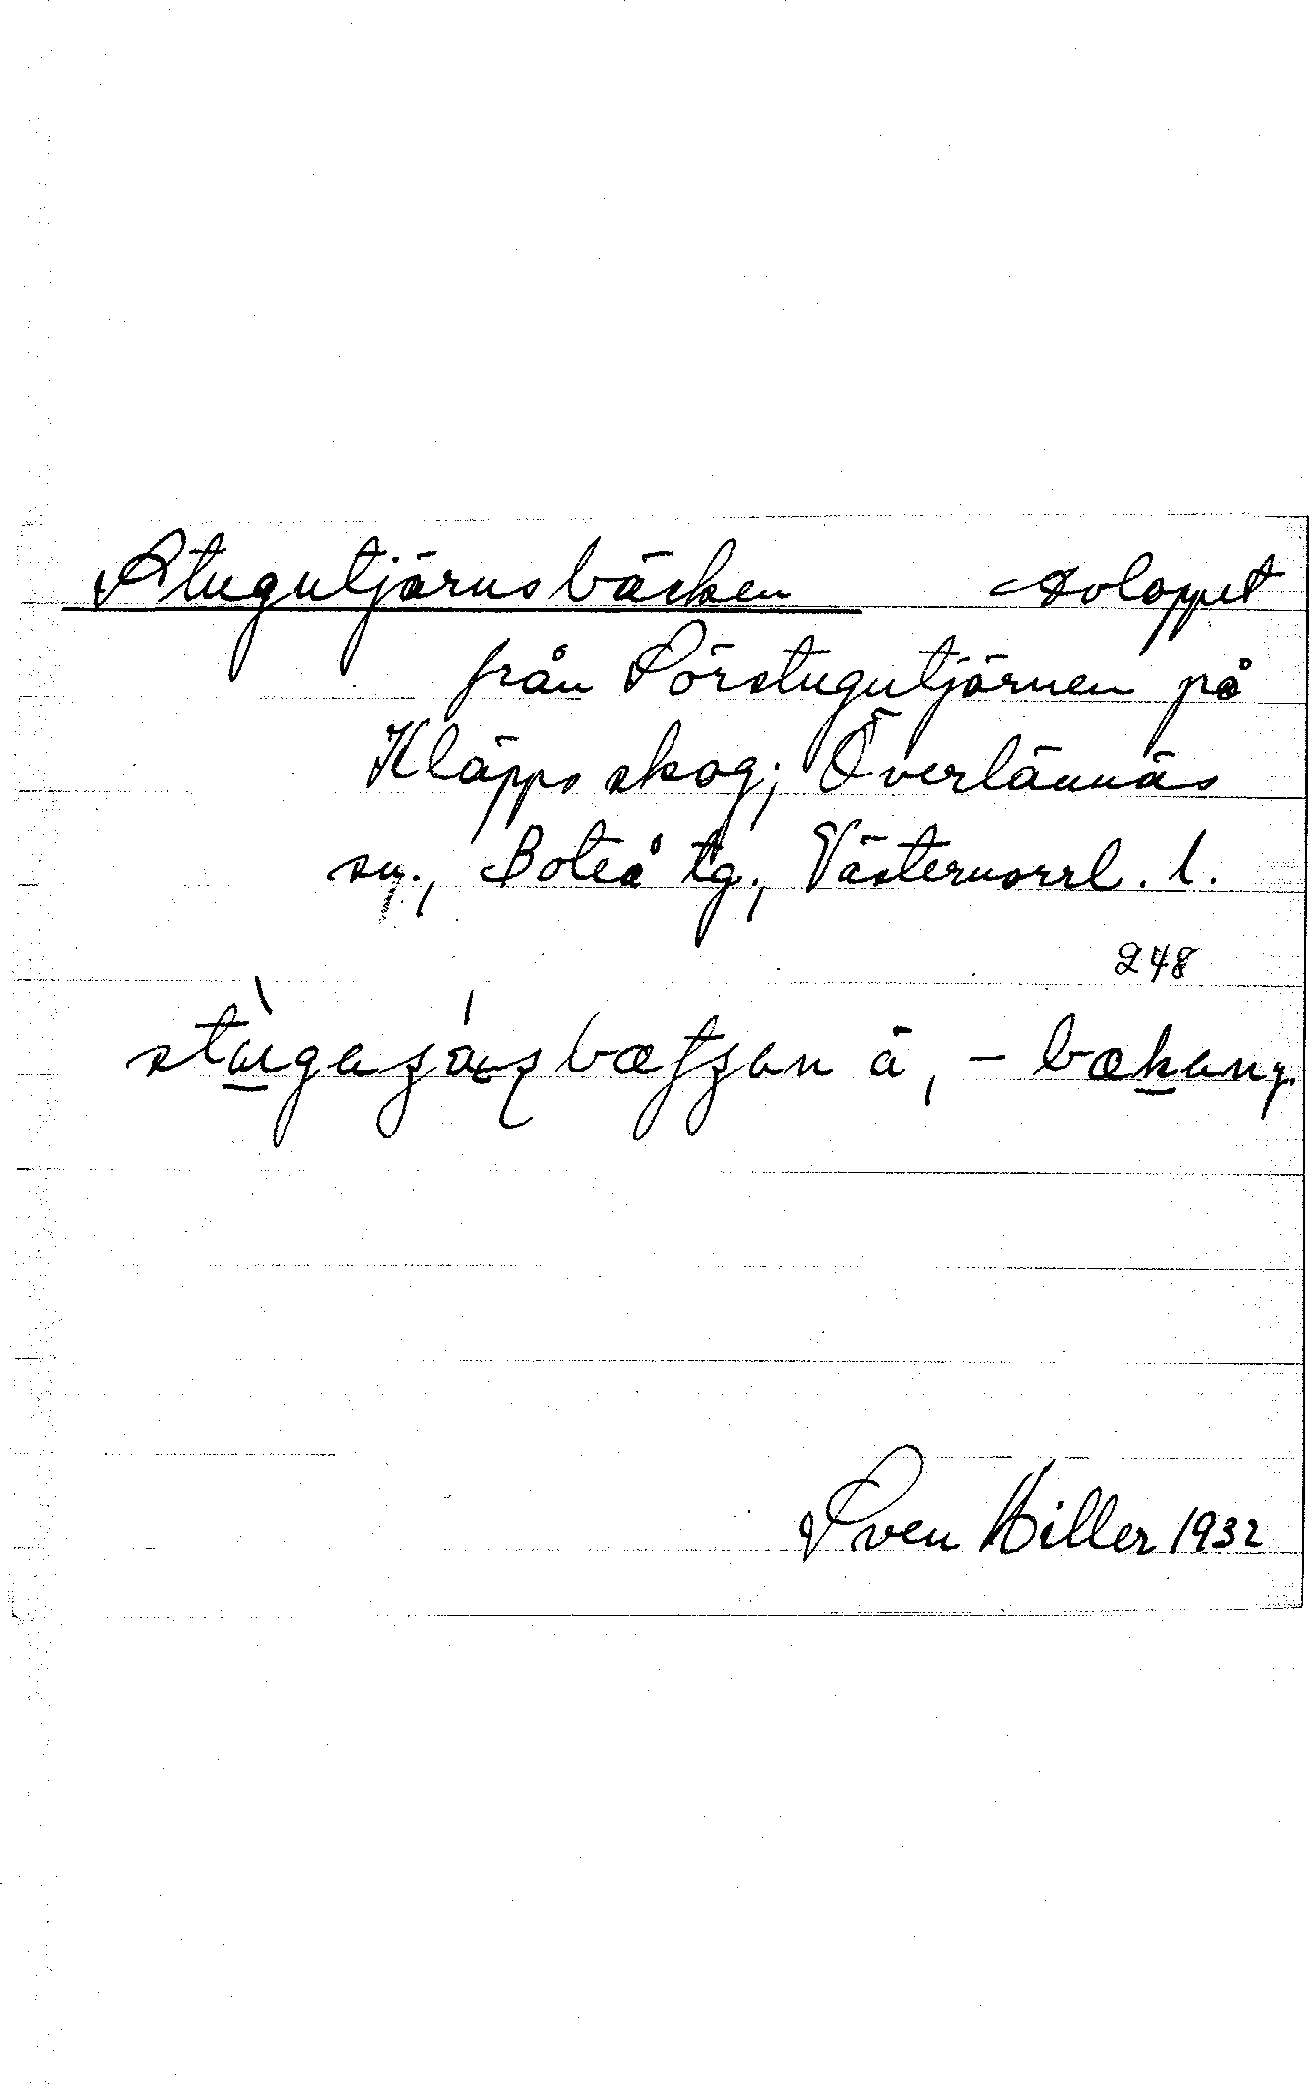 Stugutjärnsbäcken Avloppet
från Sörstugutjärnen på
Kläpps skog; Överlännäs
sn., Boteå tg., Västernorrl. l.
248
ä, -
Sven Hiller 1932